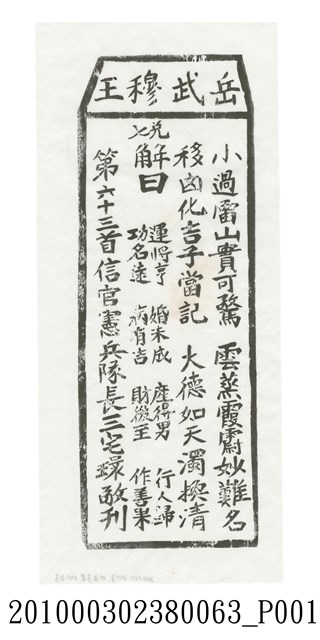 岳武穆王
小過雷山實可驚　雲蒸霞蔚妙難名
移凶化吉子當記　大德如天濁換清
兌七
解曰
運將亨　婚未成　產得男　行人歸
功名遠　病有吉　財後至　作善果
第六十三首信官憲兵隊長三宅錄敬刊
201000302380063_P001